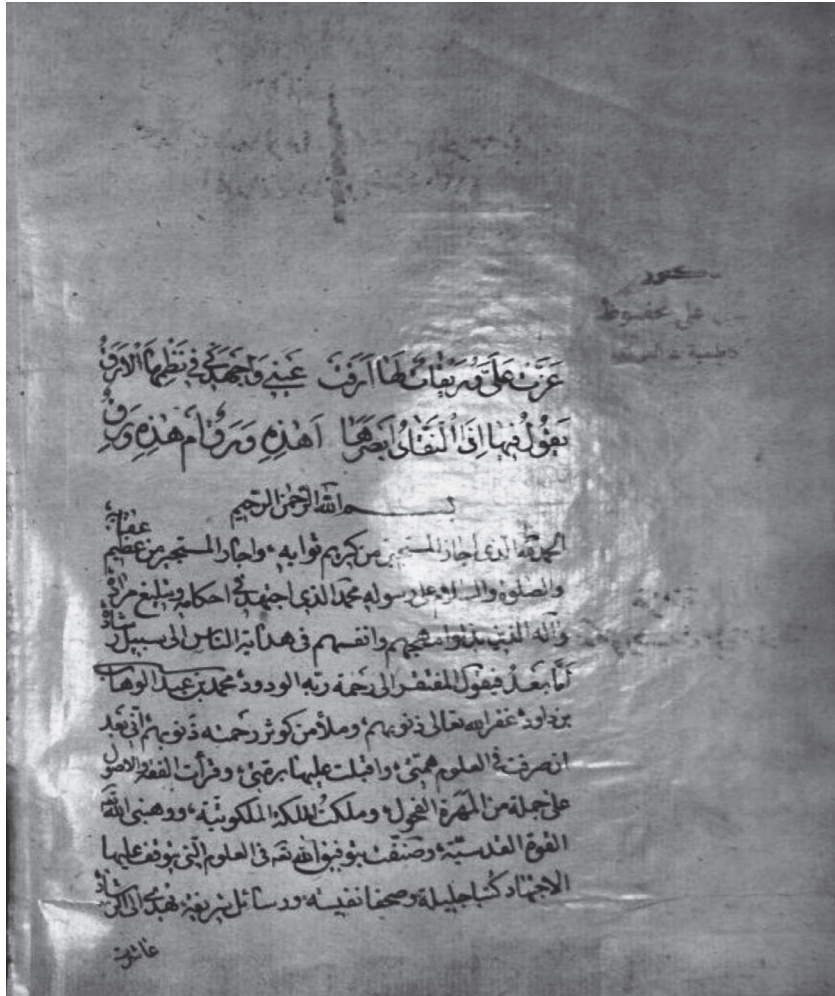 دكتور
علي محفوظ
عزت علي وريقات لها ارقت عيني واجهدني في نظمها الارق
يقول فيها اذا النقاد ابصرها اهذه ورق ام هذه ورق
بسم الله الرحمن الرحيم
الحمد لله الذي اجاز المستجيزين من كريم ثوابه، واجار المستجير من عظيم عقابه
والصلوة والسلام على رسوله محمد الذي اجتهد في احكامه وتبليغ مراده
وآله الذين بذلوا مهجهم وانفسهم في هداية الناس الى سبيل رشاده
اما بعد فيقول المفتقر الى رحمة ربه الودود محمد بن عبد الوهاب
بن داود غفر الله تعالى ذنوبهم، وملأ من كوثر رحمته ذنوبهم اني بعد
ان صرفت في العلوم همتي، واقبلت عليها برمتي، وقرأت الفقه والاصول
على جملة من المهرة الفحول، وملكت الملكة الملكوتية، ووهبني الله
القوة القدسية، وصنفت بتوفيق الله تعه في العلوم التي يتوقف عليها
الاجتهاد كتبا جليلة، وصحفا نفيسة، ورسائل شريفة، تهدي الى الرشاد